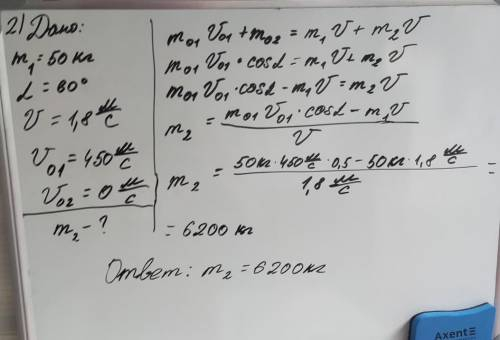 2) Дано:
m₁ = 50 кг
α = 60°
V = 1,8 м/с
V₀₁ = 450 м/с
V₀₂ = 0 м/с
m₂ - ?
m₀₁ V₀₁ + m₀₂ = m₁ V + m₂ V
m₀₁ V₀₁ · cosα = m₁ V + m₂ V
m₀₁ V₀₁ · cosα - m₁ V = m₂ V
m₂ = (m₀₁ V₀₁ · cosα - m₁ V) / V
m₂ = (50кг · 450 м/с · 0,5 - 50кг · 1,8 м/с) / (1,8 м/с) =
= 6200 кг
Ответ: m₂ = 6200кг
Axent